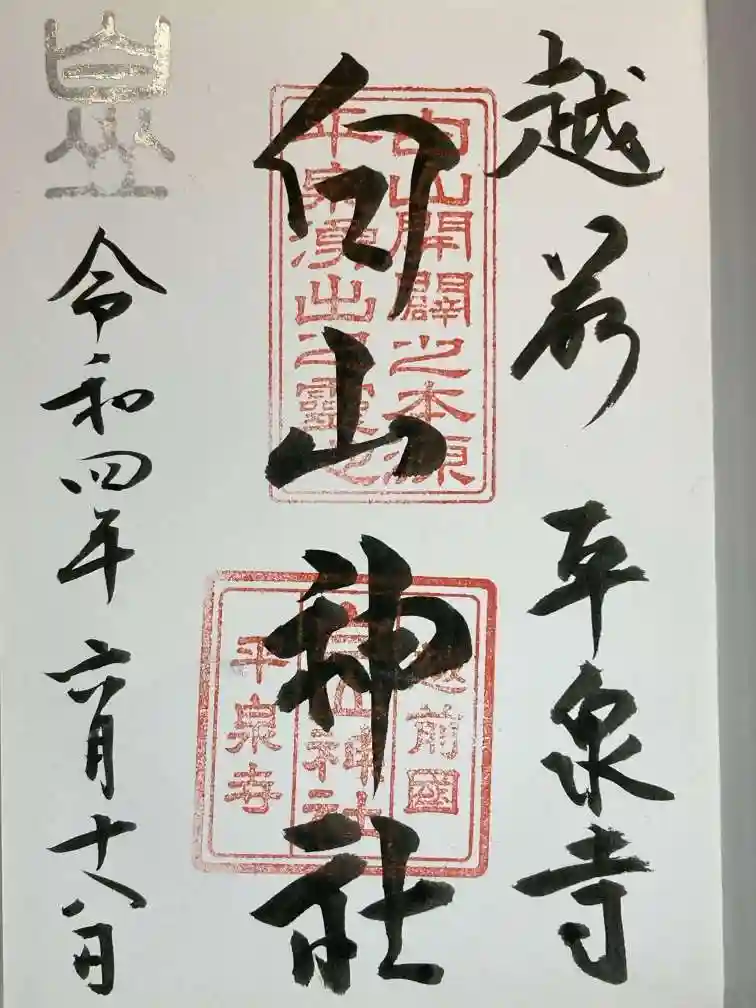 越前 平泉寺
白山神社
白山開闢之本源
平泉湧出之靈地
越前國
白山神社
平泉寺
令和四年 六月十八日